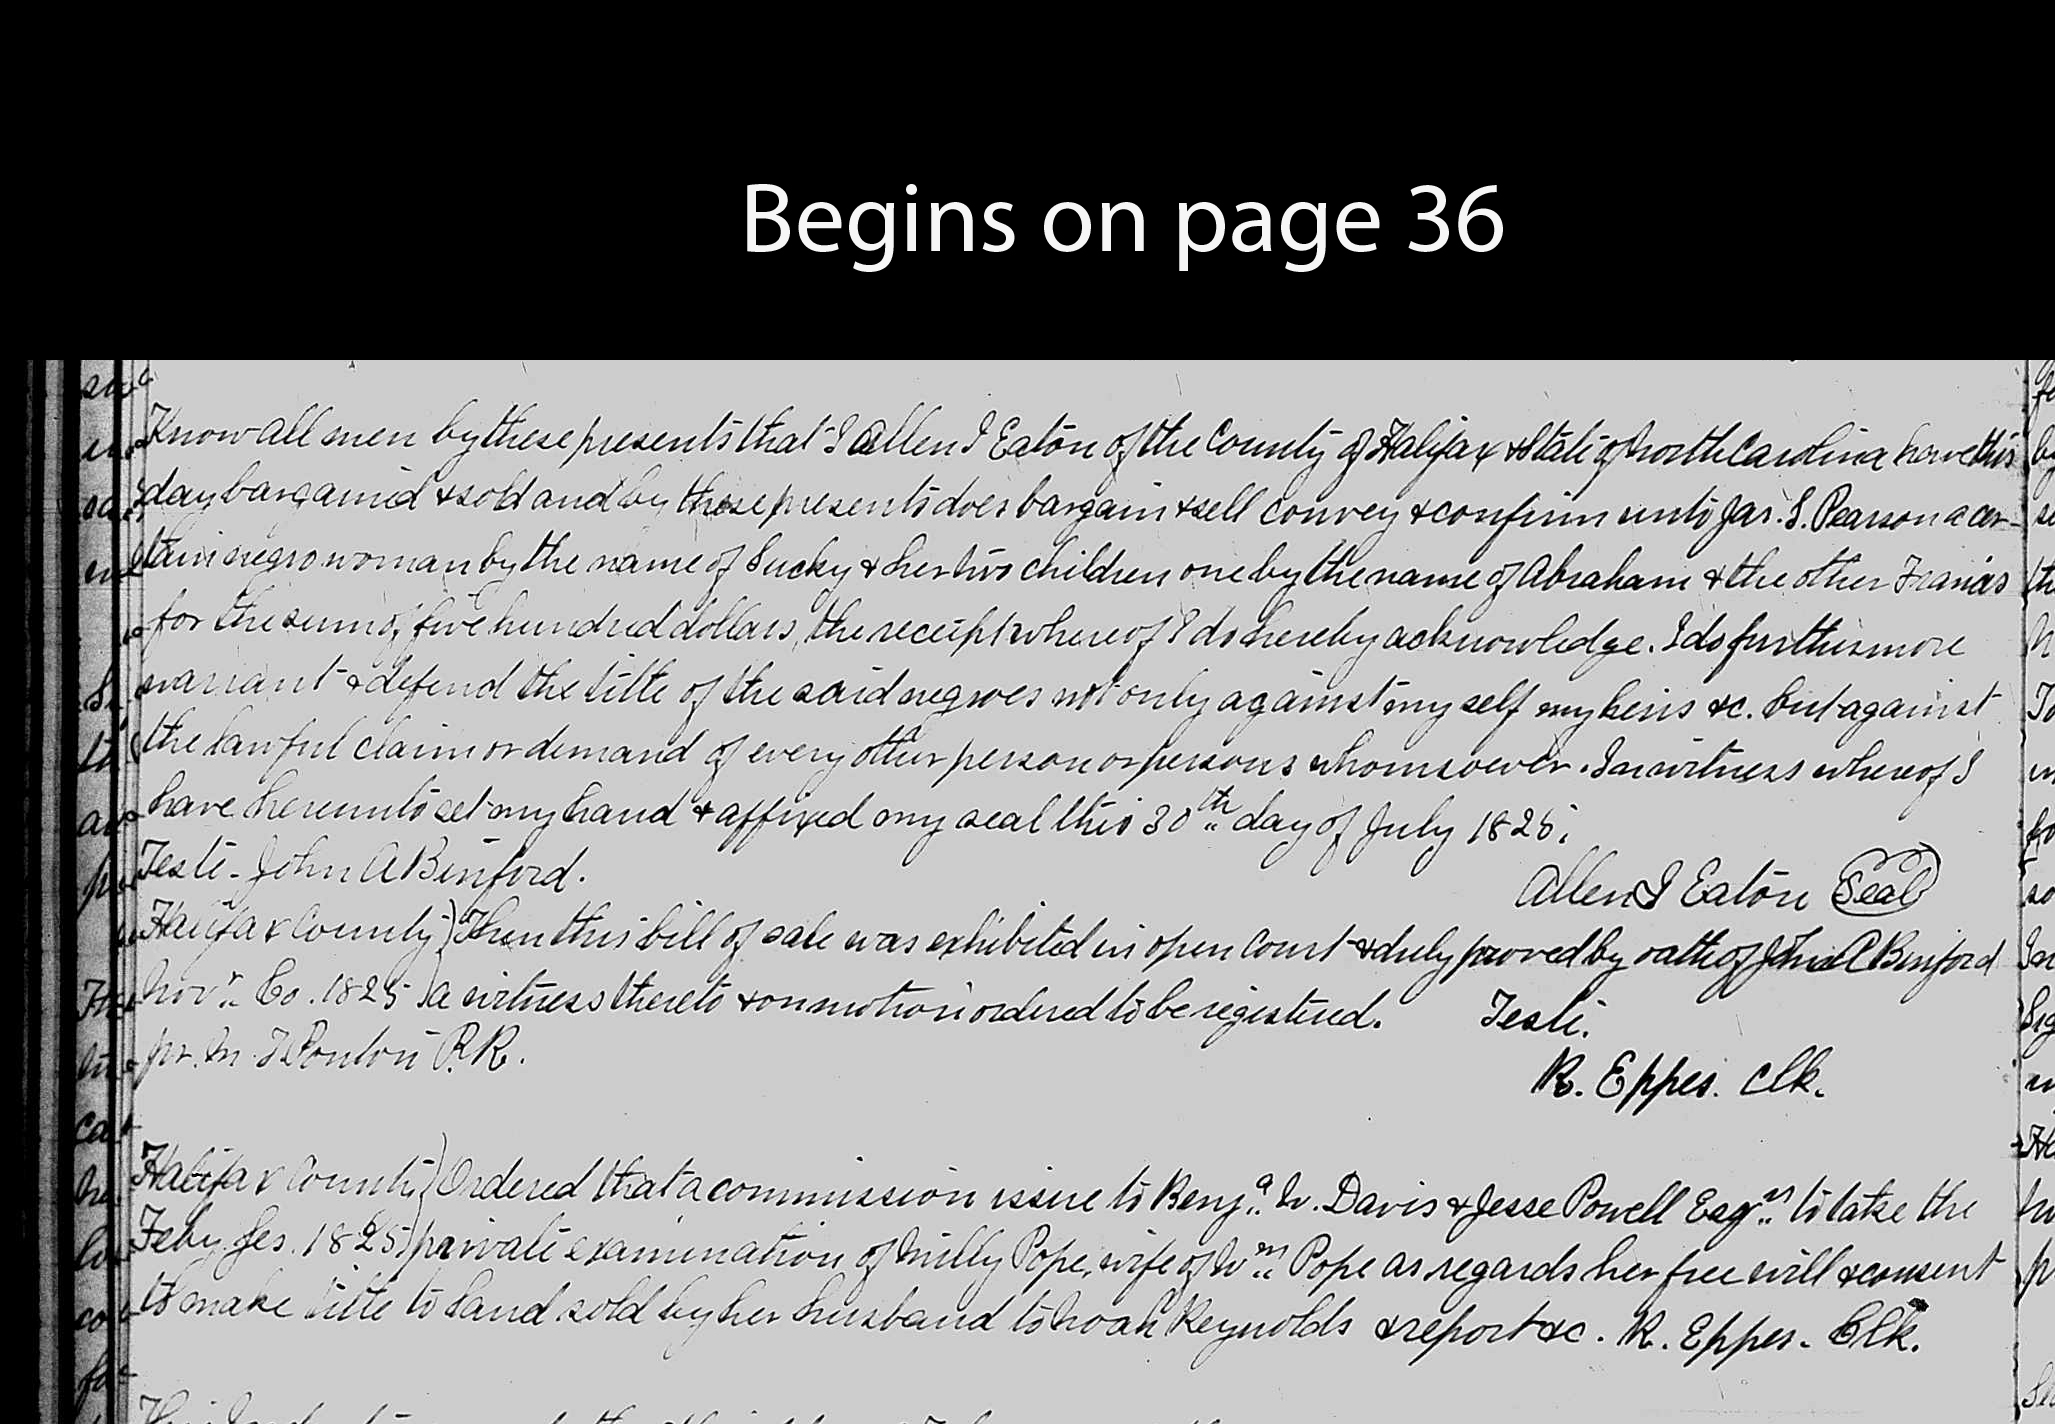 Begins on page 36
Know all men by these presents that I Allen J Eaton of the County of Halifax & State of North Carolina have this
day bargained & sold and by these presents does bargain & sell convey & confirm unto Jas. S. Pearson a cer-
tain negro woman by the name of Sucky & her two children one by the name of Abraham & the other Francis
for the sum of five hundred dollars, the receipt whereof I do hereby acknowledge. I do furthermore
warrant & defend the title of the said negroes not only against my self my heirs &c. but against
the lawful claim or demand of every other person or persons whomsoever. In witness whereof I
have hereunto set my hand & affixed my seal this 30th day of July 1825.
Teste - John A Binford.
Allen J Eaton Seal
Halifax County) Then this bill of sale was exhibited in open Court & duly proved by oath of John A Binford
Novr. Co. 1825) a witness thereto & on motion ordered to be registered. Teste.
pr. M. T Ponton P.R.
R. Eppes. Clk.
Halifax County) Ordered that a commission issue to Benja. W. Davis & Jesse Powell Esqrs. to take the
Feby Ses. 1825) private examination of Milly Pope, wife of Wm. Pope as regards her free will & consent
to make title to land sold by her husband to Noah Reynolds & report &c. R. Eppes - Clk.